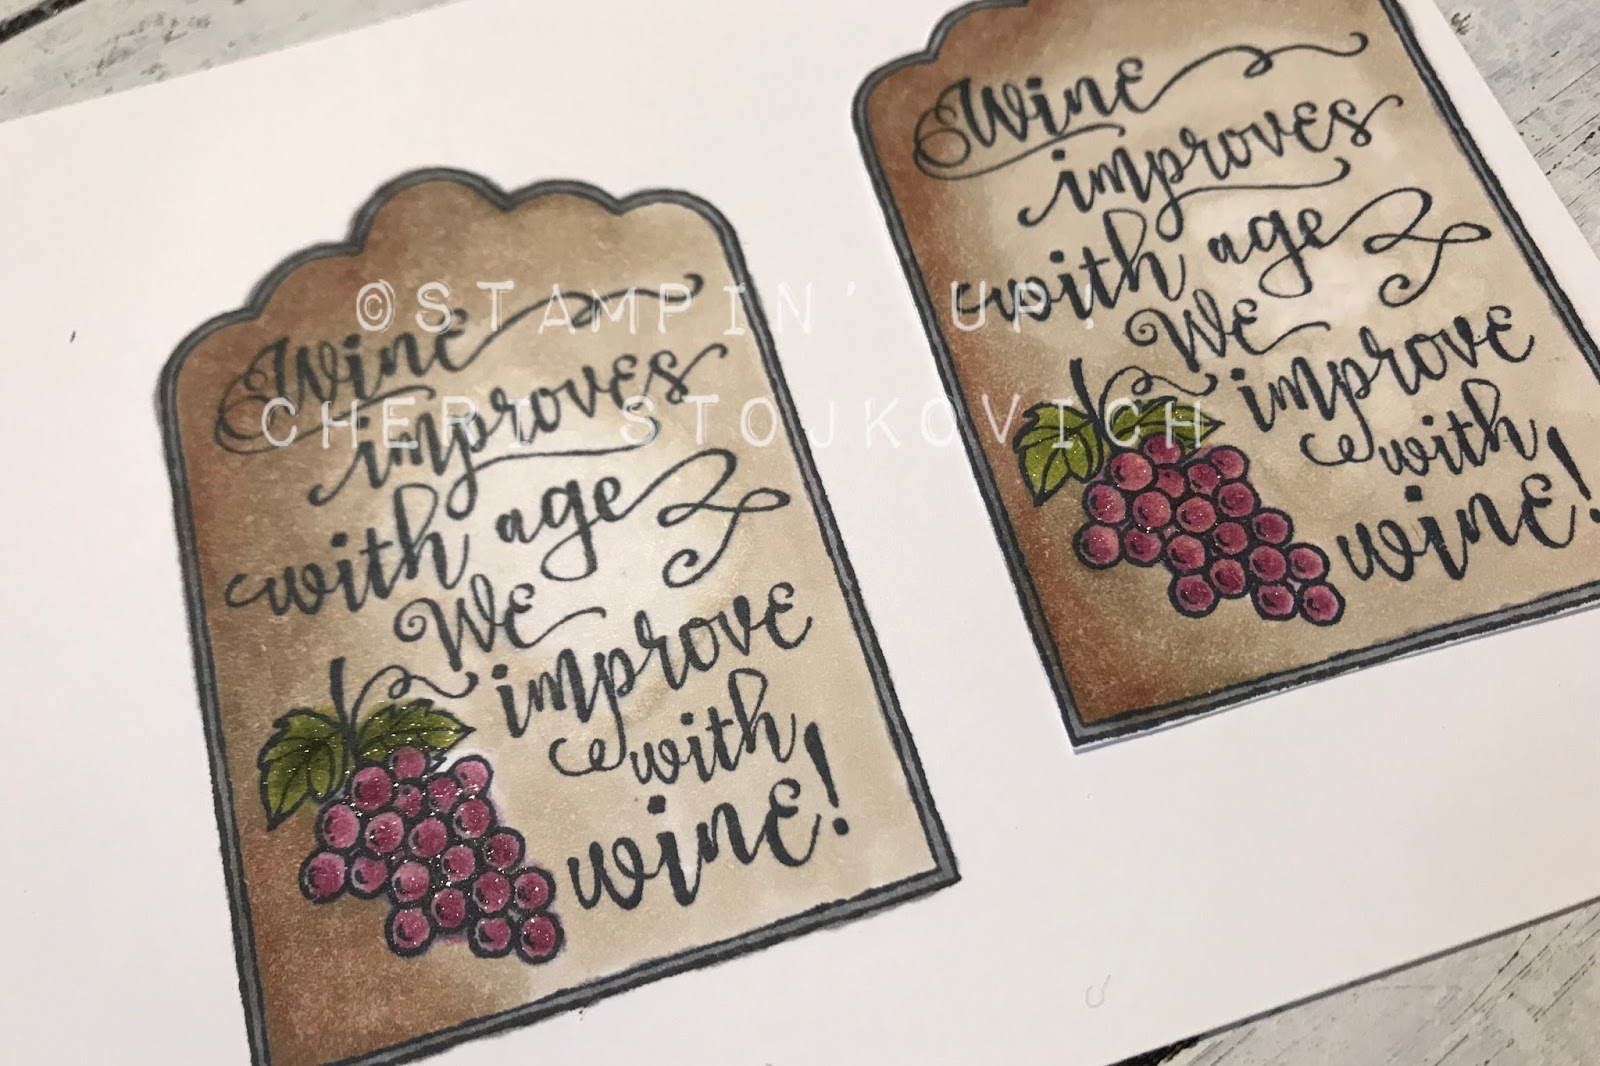 Wine
improves
with age
We
improve
with
wine!
Wine
improves
with age
We
improve
with
wine!
©STAMPIN' UP!
CHERI STOJKOVICH